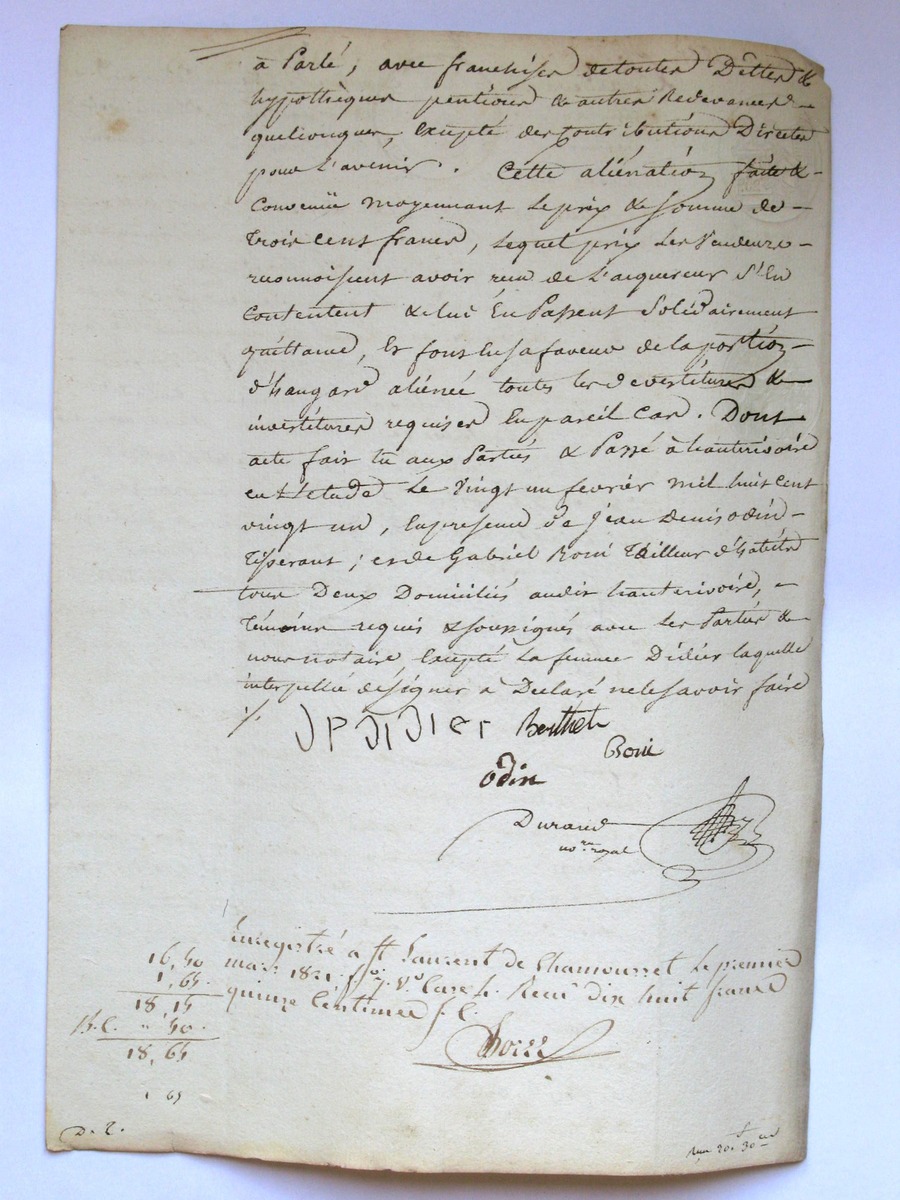 à Parté, avec franchises de toutes Dettes &
hypothèques pentions & autres Redevances
quelconques, Excepté des Contributions Directes
pour l'avenir. Cette aliénation faite &
Convenüe moyennant le prix & somme de
trois cent francs, lequel prix les Vendeurs
reconnoissent avoir reçu de L'acquereur S'En
Contentent & lui En Passent Solidairement
quittance, Et font En sa faveur de la portion
d'hangard aliénée toutes les devestitures &
investitures requises En pareil Cas. Dont
acte fait lu aux Parties & Passé à hauterivoire
en L'etude Le Vingt un fevrier mil huit cent
vingt un, En presence de Jean Denis odin
tisserant; et de Gabriel Roni Tailleur d'habits
tous Deux Domiciliés audit hauterivoire,
témoins requis & soussignés avec les Parties &
nous notaire, Excepté La femme Didier laquelle
interpellée de signer a Declaré ne le savoir faire
./.
JP DiDier Berthet
Roni
Odin
Durand
no.re royal
Enregistré à St Laurent de Chamousset le premier
mars 1821, f.o 7. V.o Case 4. Recu dix huit francs
quinze Centimes
16,50
1,65
18,15
50
18,65
1 65
D. 2.